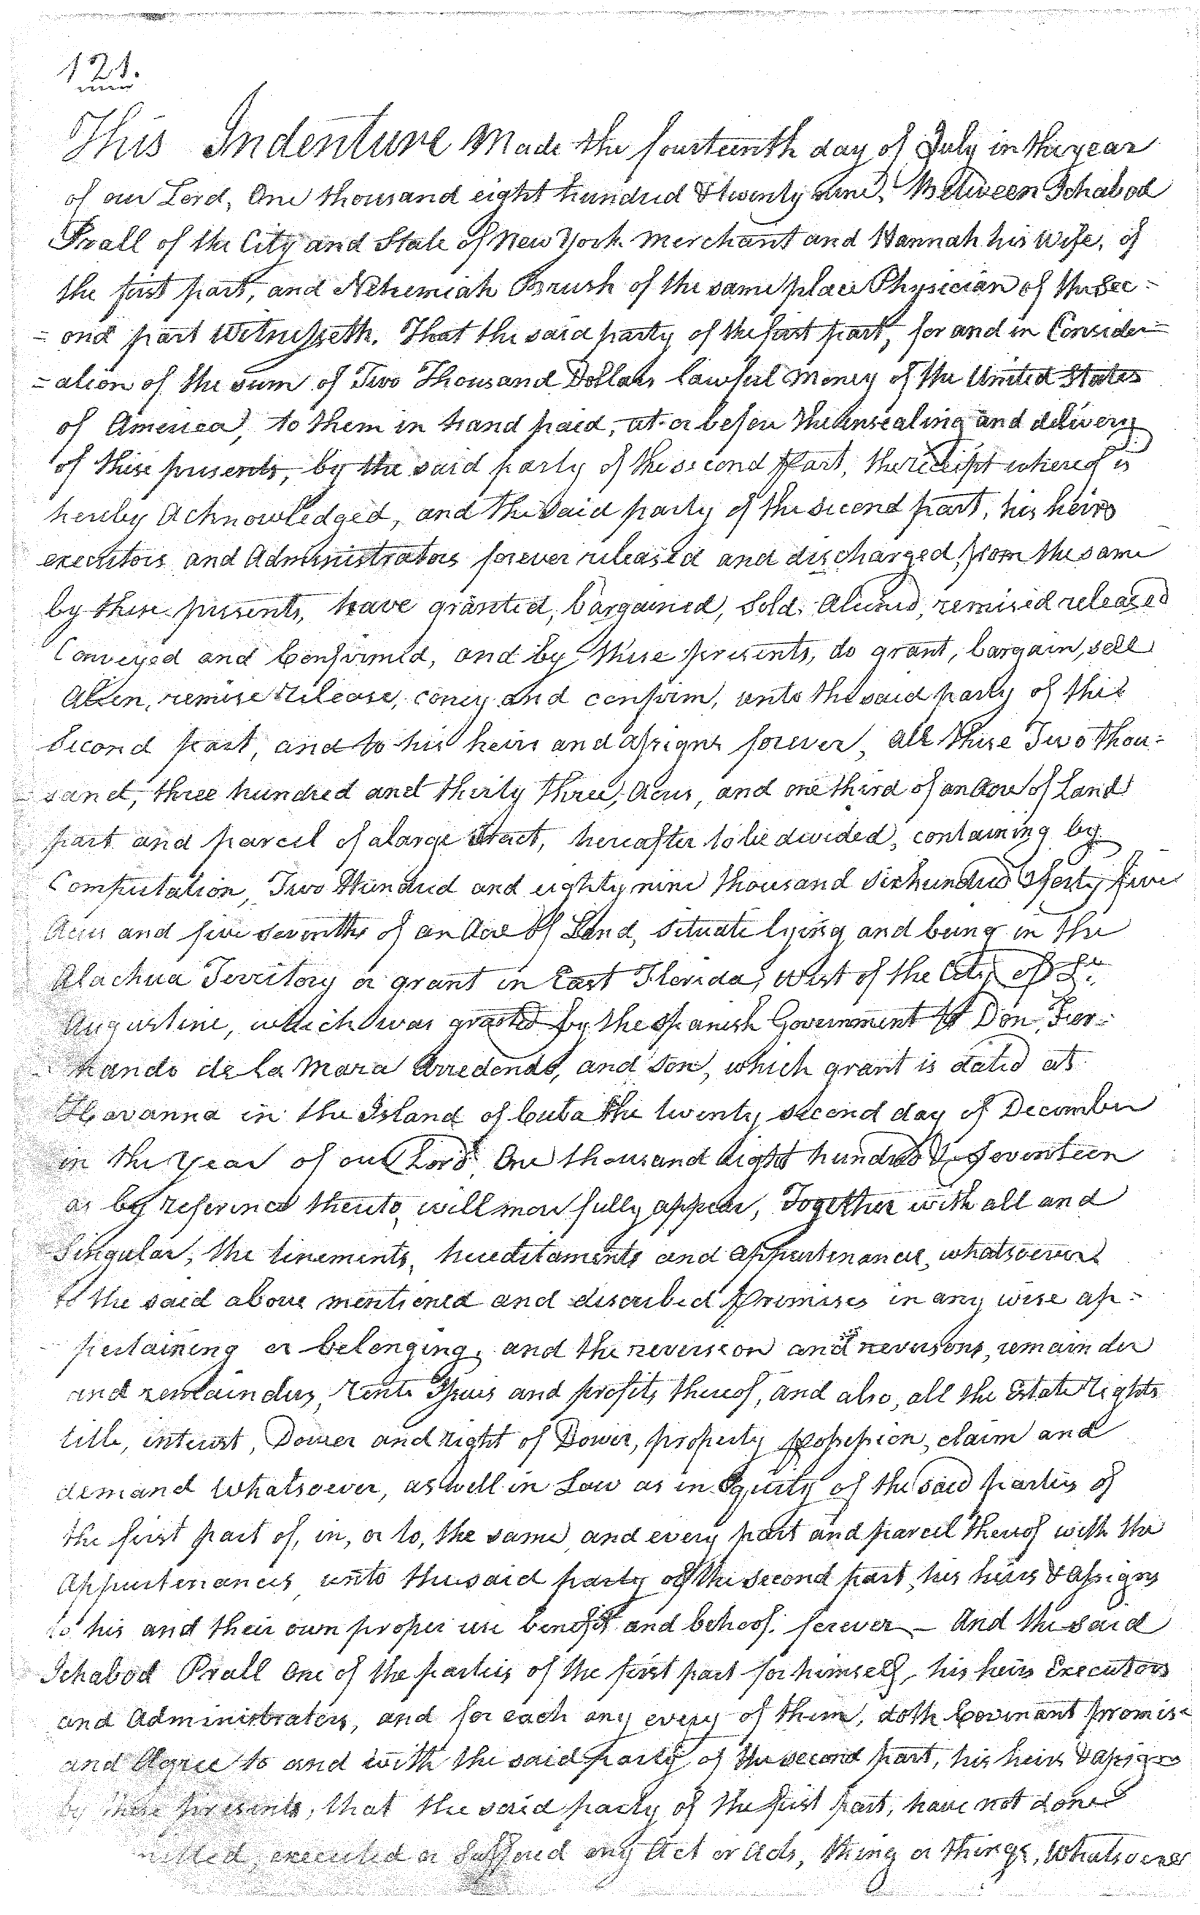 121.
This Indenture Made the fourteenth day of July in the year
of our Lord, One thousand eight hundred & twenty nine, Between Ichabod
Prall of the City and State of New York Merchant and Hannah his Wife, of
the first part, and Nehemiah Brush of the same place Physician of the Sec=
=ond part Witnesseth. That the said party of the first part, for and in Consider=
=ation of the sum of Two Thousand Dollars lawful Money of the United States
of America, to them in hand paid, at or before the ensealing and delivery
of these presents, by the said party of the second part, the receipt whereof is
hereby Acknowledged, and the said party of the second part, his heirs
executors and Administrators forever released and discharged, from the same
by these presents, have granted, bargained, Sold, Aliened, remised released
Conveyed and Confirmed, and by these presents, do grant, bargain, sell
Alien, remise release, coney and confirm, unto the said party of the
Second part, and to his heirs and assigns forever, all those Two thou=
sand, three hundred and thirty three, Acres, and one third of an Acre of Land
part and parcel of a large tract, hereafter to be divided, containing by
Computation, Two Hundred and eighty nine thousand six hundred & forty five
Acres and five sevenths of an Acre of Land, situate lying and being in the
Alachua Territory or grant in East Florida, West of the City of St.
Augustine, which was granted by the Spanish Government to Don Fer=
nando de la Maza Arredondo, and son, which grant is dated at
Havanna in the Island of Cuba the twenty second day of December
in the Year of our Lord One thousand eight hundred & Seventeen
as by reference thereto, will more fully appear, Together with all and
Singular, the tenements, hereditaments and appurtenances, whatsoever
to the said above mentioned and described Premises in any wise ap=
pertaining or belonging, and the reversion and reversions, remainder
and remainders, rents Issues and profits thereof, and also, all the Estate rights
title, interest, Dower and right of Dower, property possession, claim and
demand Whatsoever, as well in Law as in Equity of the said parties of
the first part of, in, or to, the same, and every part and parcel thereof with the
Appurtenances unto the said party of the second part, his heirs & Assigns
to his and their own proper use benefit and behoof forever - And the said
Ichabod Prall One of the parties of the first part for himself, his heirs Executors
and Administrators, and for each any every of them, doth Covenant promise
and Agree to and with the said party of the second part, his heirs & assigns
by these presents, that the said party of the first part, have not done
executed or Suffered any Act or Acts, thing or things, Whatsoever